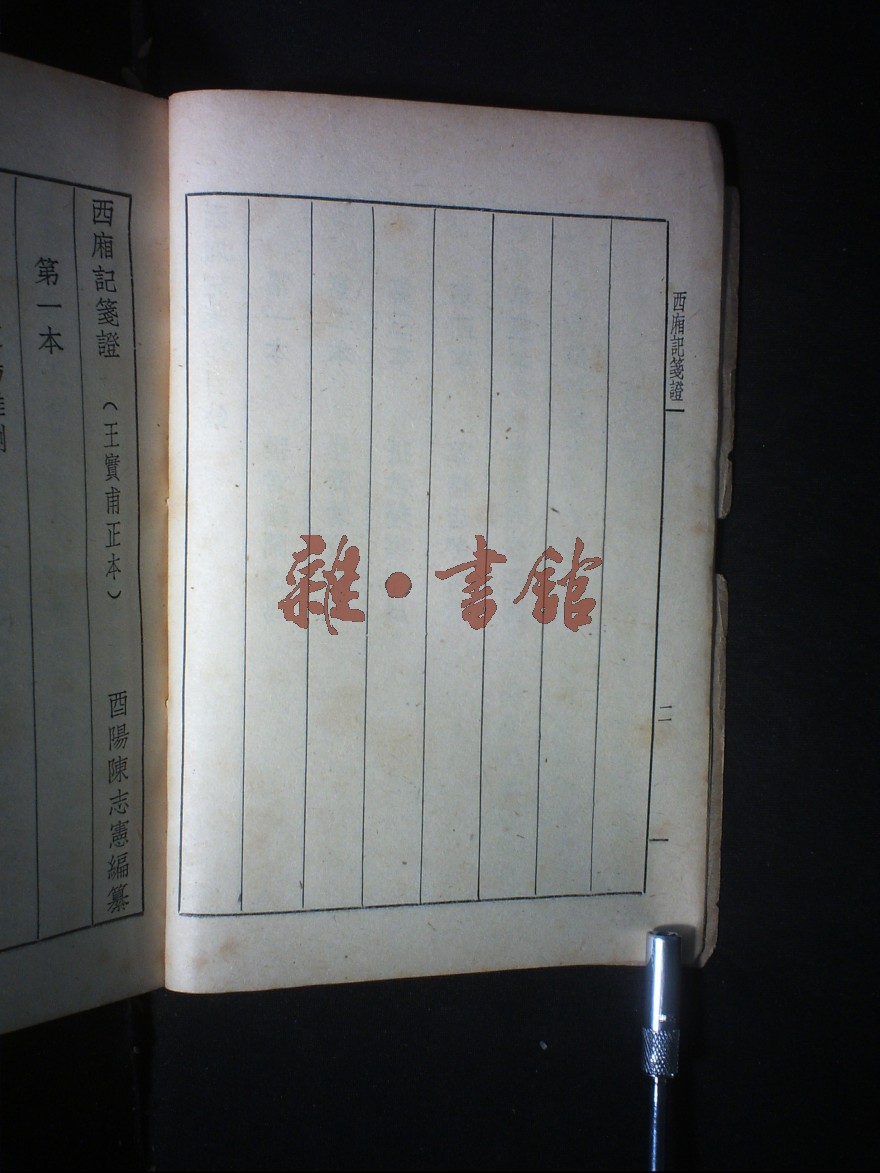 西廂記箋證
二
雜·書館
西廂記箋證 （王實甫正本） 酉陽陳志憲編纂
第一本